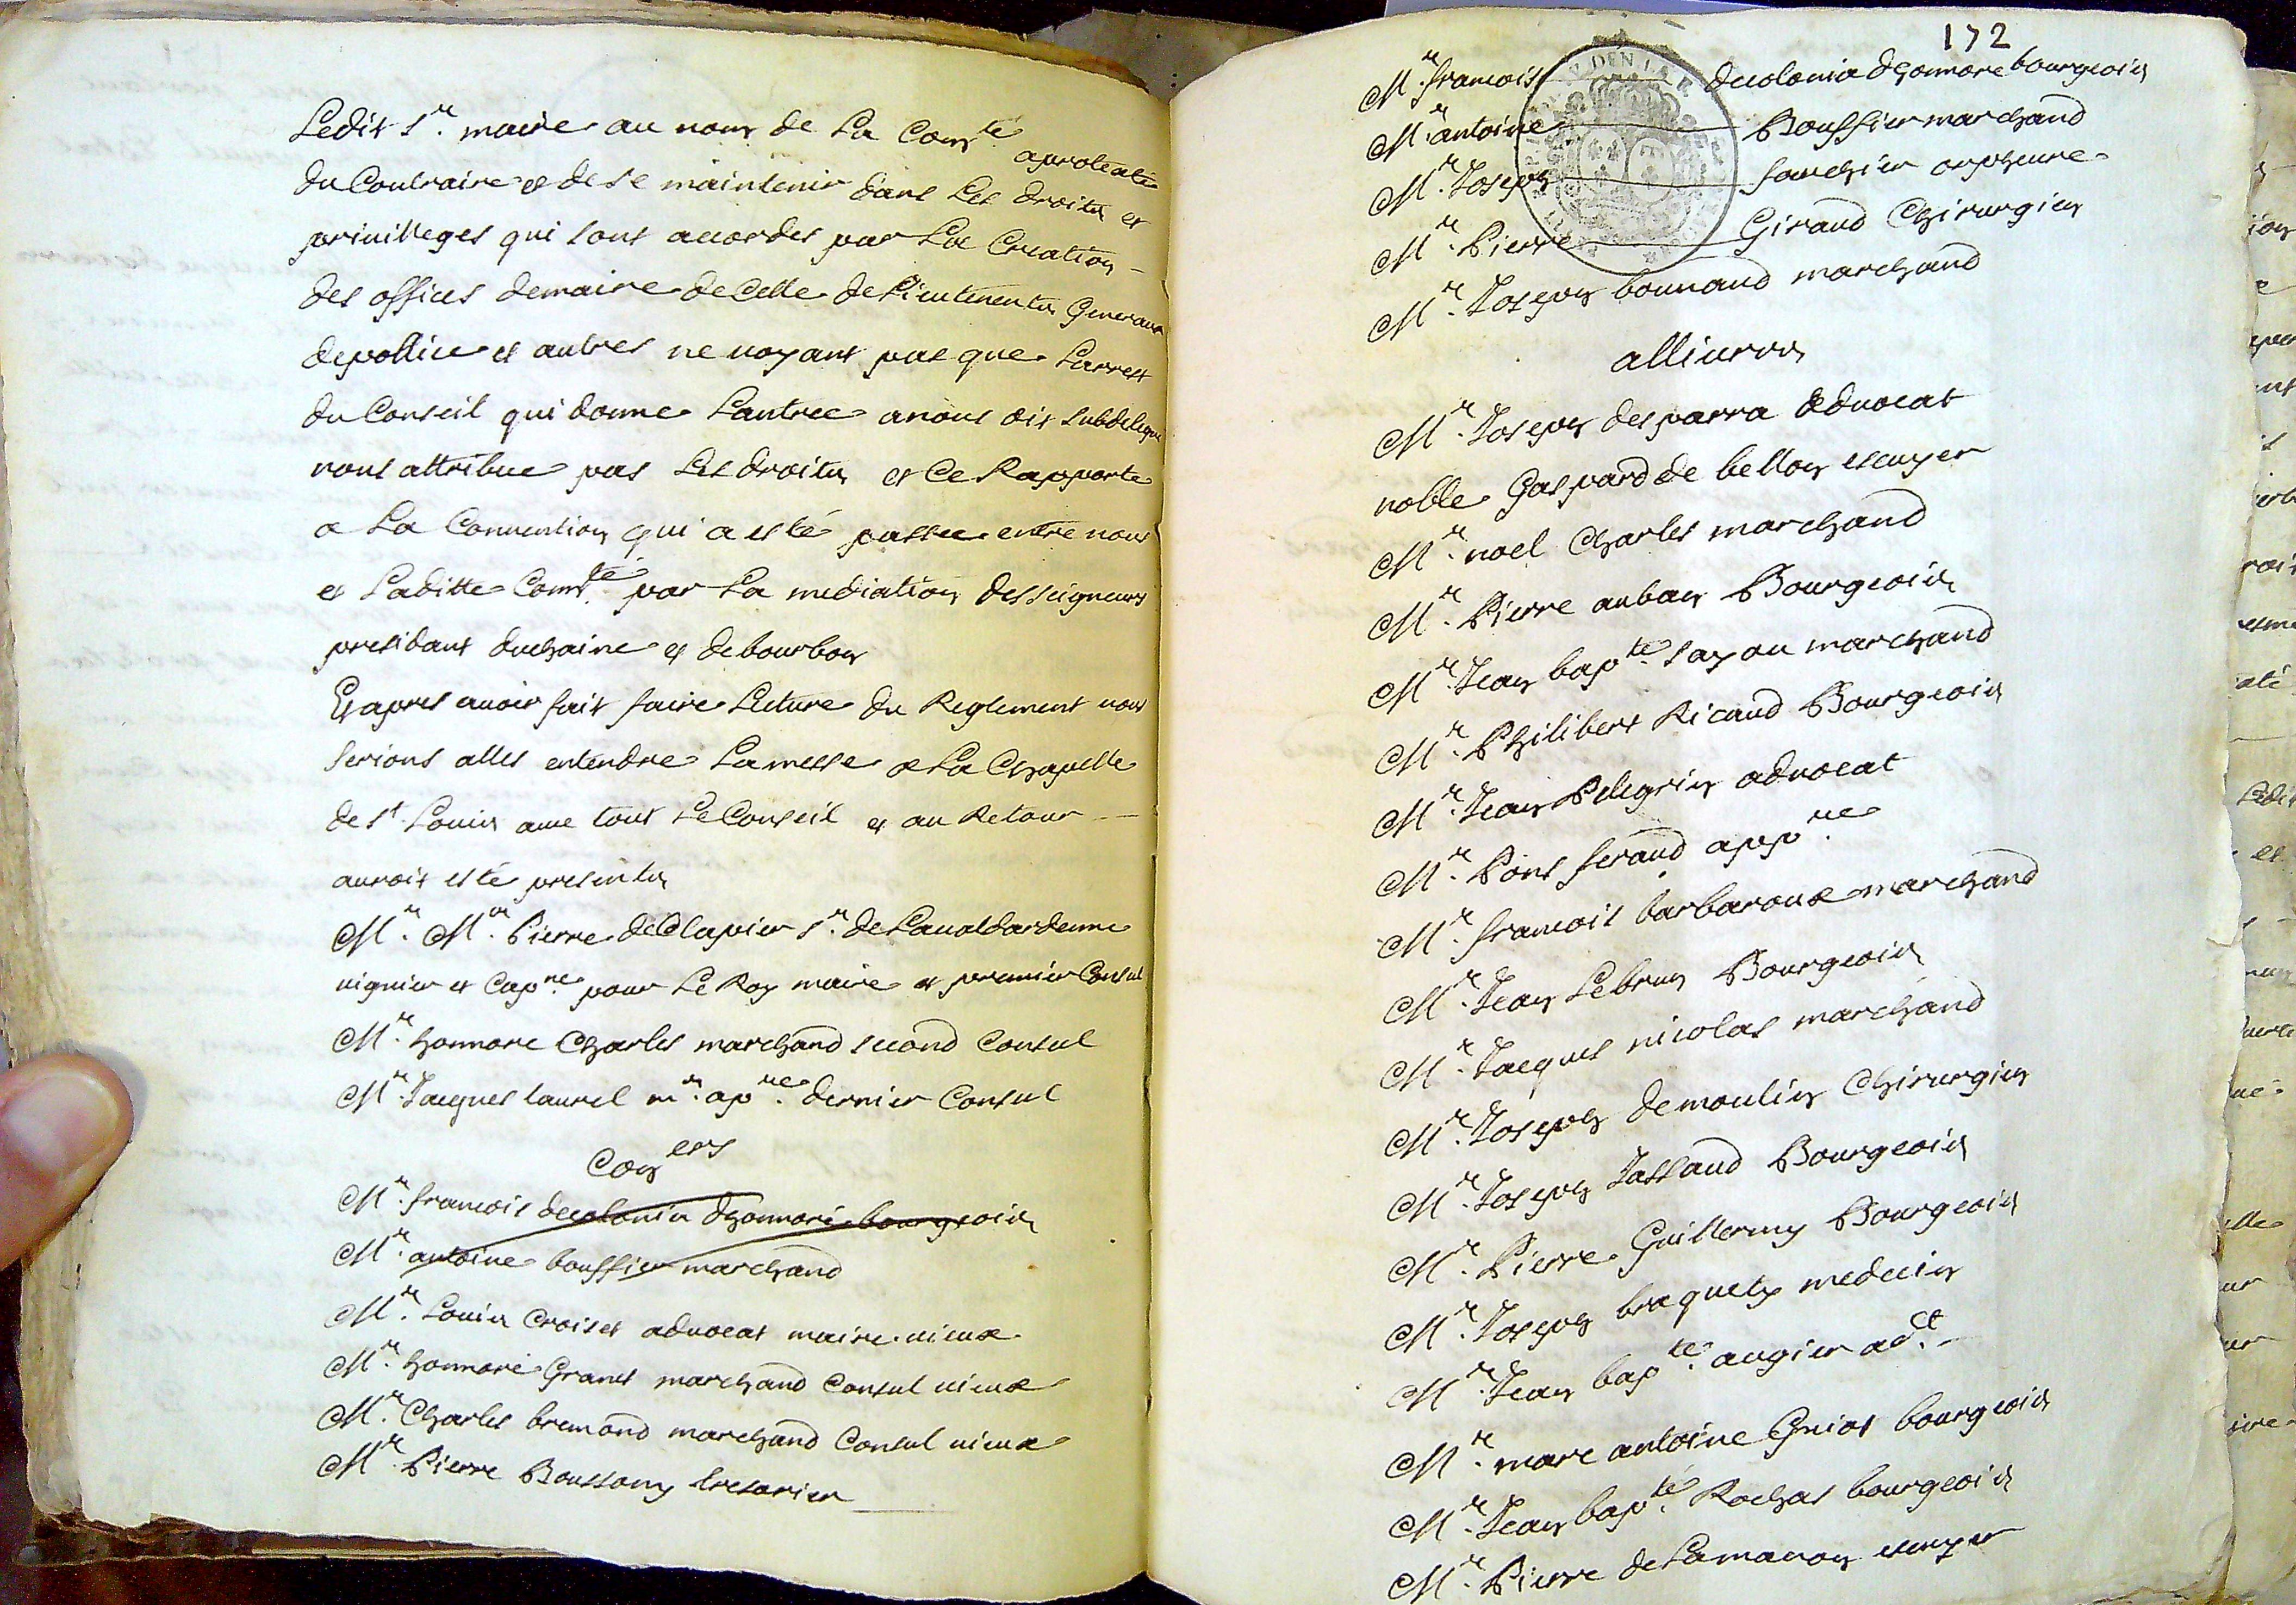 Ledit Sr. maire au nom de La Comte a proteste
du Contraire et de se maintenir dans Les droits et
privilleges qui sont accordes par La Creation
des offices de maire de Celle de Lieutenents Generaux
de pollice et autres ne voyant pas que Larrest
du Conseil qui donne Lantree a nous dit subdelegue
nous attribue pas Les droits et Ce Rapporte
a La Convention qui a esté passee entre nous
et Laditte Comte. par La mediation des seigneurs
presidant duchaine et de bourbon
Et apres avoir fait faire Leture du Reglement nous
serions alles entendre La messe a La Chapelle
de st Louis avec tout Le Conseil et au Retour
auroit esté presents
Mr. Mre. Pierre de Clapier Sr. de Lavaldardenne
viguier et Capne. pour Le Roy maire et premier Consul
Mr. honnore Charles marchand second Consul
Mr. Jacques laurel mr. apre. dernier Consul
Coners
Mr. francois decolonia dhonnoré bourgeois
Mr. antoine bouffier marchand
Mr. Louis Croiset advocat maire vieux
Mr. honnoré Granet marchand Consul vieux
Mr. Charles bremond marchand Consul vieux
Mr. Pierre Boussony tresorier
172
Mr. francois decolonia dhonnore bourgeois
Mr. antoine Bouffier marchand
Mr. Joseph fauchier orpheure
Mr. Pierre Giraud Chirurgien
Mr. Joseph bonnaud marchand
allivres
Mr. Joseph desparra advocat
noble Gaspard de bellon escuyer
Mr. noel Charles marchand
Mr. Pierre auban Bourgeois
Mr. Jean bapte. sayou marchand
Mr. Philibert Ricaud Bourgeois
Mr. Jean Pelegrin advocat
Mr. Pons feraud appre.
Mr. francois barbaroux marchand
Mr. Jean Lebrun Bourgeois
Mr. Jacques nicolas marchand
Mr. Joseph demoulin Chirurgien
Mr. Joseph Jassaud Bourgeois
Mr. Pierre Guillermy Bourgeois
Mr. Joseph braquety medecin
Mr. Jean bapte. augier adct.
Mr. marc antoine Guiot bourgeois
Mr. Jean bapte. Rochas bourgeois
Mr. Pierre de Lamanon escuyer